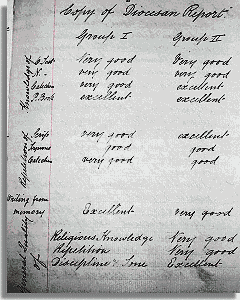 Copy of Diocesan Report.
Group I Group II
Knowledge of
O. Test Very good Very good
N. - very good very good
Catechm very good excellent
P. Book excellent excellent
Repetition of
Scrip very good excellent
Hymns good good
Catechm very good good
Writing from
memory Excellent very good
General
of
Religious Knowledge Very good
Repetition Very good
Discipline & Tone Excellent